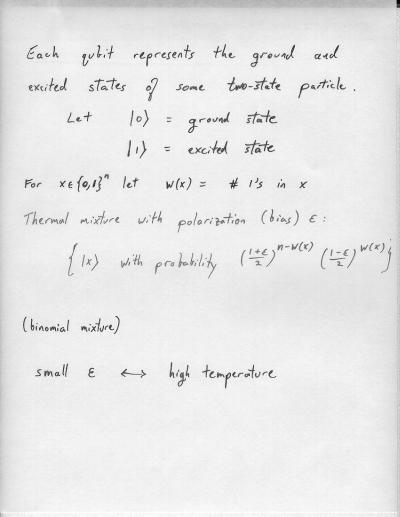 Each qubit represents the ground and
excited states of some two-state particle.
Let |0⟩ = ground state
|1⟩ = excited state
For x∈{0,1}ⁿ let w(x) = # 1's in x
Thermal mixture with polarization (bias) ε:
{ |x⟩ with probability ((1+ε)/2)^(n-w(x)) ((1-ε)/2)^(w(x)) }
(binomial mixture)
small ε ↔ high temperature